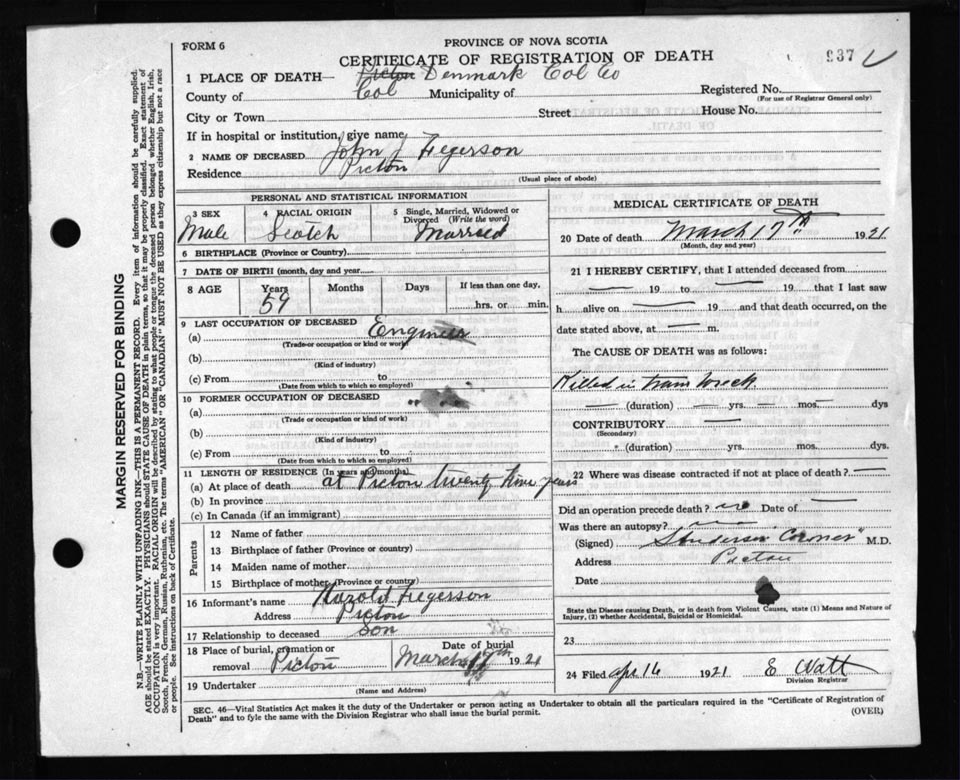 FORM 6
PROVINCE OF NOVA SCOTIA
CERTIFICATE OF REGISTRATION OF DEATH
937
1 PLACE OF DEATH— Picton Denmark Col Co
County of Col Municipality of
Registered No.
(For use of Registrar General only)
City or Town Street House No.
If in hospital or institution, give name
2 NAME OF DECEASED John J Fegerson
Residence Picton
(Usual place of abode)
PERSONAL AND STATISTICAL INFORMATION
3 SEX 4 RACIAL ORIGIN 5 Single, Married, Widowed or
Divorced (Write the word)
Male Scotch Married
6 BIRTHPLACE (Province or Country)
7 DATE OF BIRTH (month, day and year)
8 AGE Years Months Days If less than one day,
59 hrs. or min.
9 LAST OCCUPATION OF DECEASED
(a) Engineer
(Trade or occupation or kind or work)
(b)
(Kind of industry)
(c) From to
(Date from which to which so employed)
10 FORMER OCCUPATION OF DECEASED
(a)
(Trade / occupation or kind of work)
(b)
(Kind of industry)
(c) From to
(Date from which to which so employed)
11 LENGTH OF RESIDENCE (In years and months)
(a) At place of death at Picton twenty nine years
(b) In province
(c) In Canada (if an immigrant)
Parents
12 Name of father
13 Birthplace of father (Province or country)
14 Maiden name of mother
15 Birthplace of mother (Province or country)
16 Informant's name Harold Fegerson
Address Picton
17 Relationship to deceased Son
18 Place of burial or
removal Picton
Date of burial
March 19th 1921
19 Undertaker
(Name and Address)
MEDICAL CERTIFICATE OF DEATH
20 Date of death March 17th 1921
(Month, day and year)
21 I HEREBY CERTIFY, that I attended deceased from
— 19 — to — 19 — that I last saw
h alive on — 19 — and that death occurred, on the
date stated above, at — m.
The CAUSE OF DEATH was as follows:
Killed in train wreck
— (duration) — yrs. — mos. — dys
CONTRIBUTORY —
(Secondary)
(duration) yrs. mos. dys.
22 Where was disease contracted if not at place of death? —
Did an operation precede death? no Date of —
Was there an autopsy? —
(Signed) Coroner" M.D.
Address Picton
Date
State the Disease causing Death, or in death from Violent Causes, state (1) Means and Nature of
Injury, (2) whether Accidental, Suicidal or Homicidal.
23
24 Filed Apr 16 1921 E Watt
Division Registrar
SEC. 46—Vital Statistics Act makes it the duty of the Undertaker or person acting as Undertaker to obtain all the particulars required in the "Certificate of Registration of
Death" and to fyle the same with the Division Registrar who shall issue the burial permit.
(OVER)
MARGIN RESERVED FOR BINDING
N.B.—WRITE PLAINLY WITH UNFADING INK—THIS IS A PERMANENT RECORD. Every item of information should be carefully supplied.
AGE should be stated EXACTLY. PHYSICIANS should STATE CAUSE OF DEATH in plain terms, so that it may be properly classified. Exact statement of
OCCUPATION is very important. RACIAL ORIGIN will be described by stating to what people or tongue the deceased person belonged whether English, Irish,
Scotch, French, German, Russian, Ruthenian, etc. The terms "AMERICAN" OR "CANADIAN" MUST NOT BE USED as they express citizenship but not a race
or people. See instructions on back of Certificate.